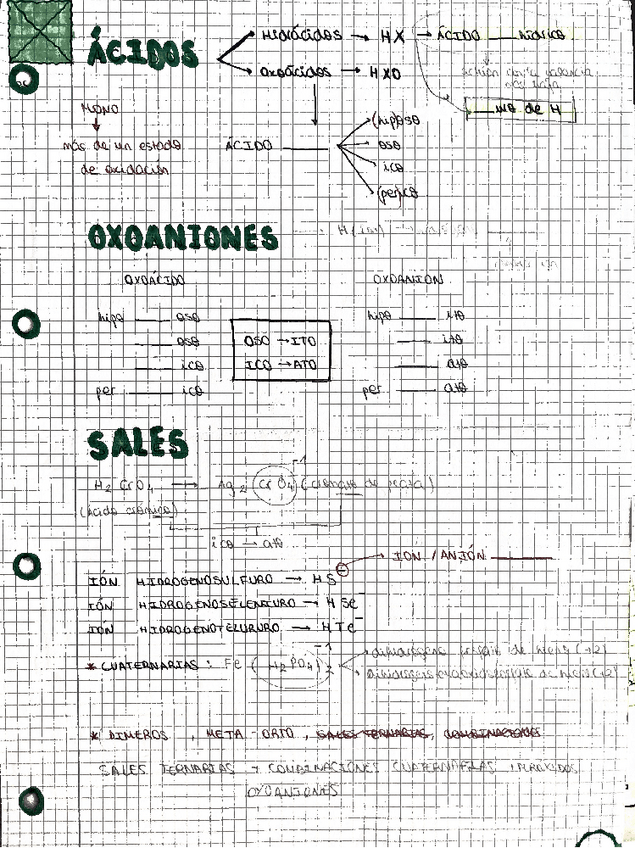 ÁCIDOS
Hidrácidos → HX → ÁCIDO ____hídrico
Oxoácidos → HXO
____uro de H
MONO
más de un estado
de oxidación
ÁCIDO ____
(hipo)oso
oso
ico
(per)ico
OXOANIONES
OXOÁCIDO
OXOANIÓN
hipo ____ oso
____ oso
____ ico
per ____ ico
OSO → ITO
ICO → ATO
hipo ____ ito
____ ito
____ ato
per ____ ato
SALES
H2CrO4 → Ag2(CrO4) (cromato de plata)
(ácido crómico)
ico → ato
ION / ANIÓN ____
IÓN HIDROGENOSULFURO → HS⁻
IÓN HIDROGENOSELENIURO → HSe⁻
IÓN HIDROGENOTELURURO → HTe⁻
* CUATERNARIAS: Fe(H2PO4)2
* DIMEROS, META-ORTO, SALES TERNARIAS, COMBINACIONES
SALES TERNARIAS → COMBINACIONES CUATERNARIAS,
OXOANIONES